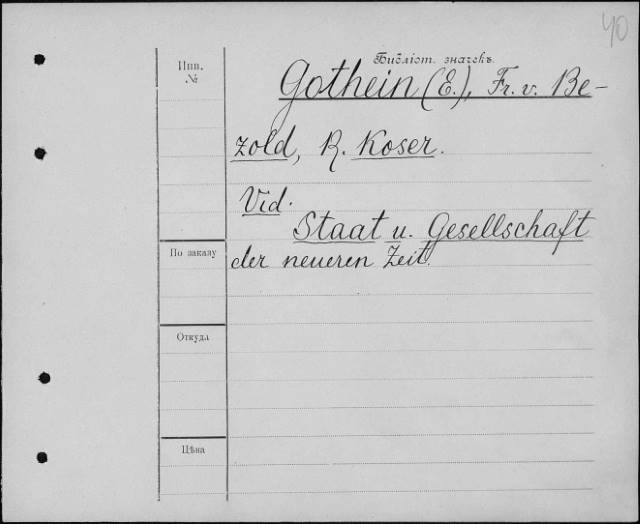 40
Библіот. значекъ.
Инв.
№
Gothein (E.), Fr. v. Be-
zold, R. Koser.
Vid.
Staat u. Gesellschaft
По заказу
der neueren Zeit.
Откуда
Цѣна